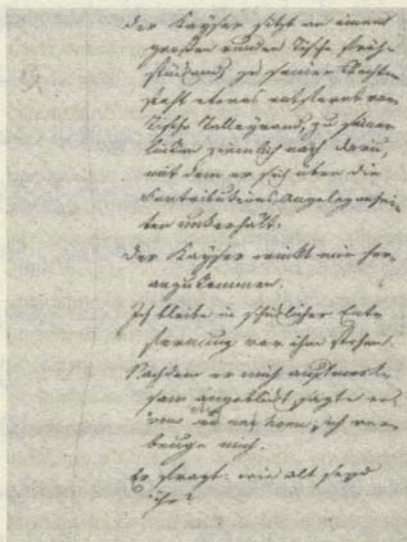 Der Kayser sitzt an einem
großen runden Tische früh-
stückend, zu seiner Rechten
steht etwas entfernt vom
Tische Talleyrand, zu seiner
linken ziemlich nach Daru,
mit dem er sich über die
Contributions-Angelegenhei-
ten unterhält.
Der Kayser winkt mir her-
anzukommen.
Ich bleibe in schicklicher Ent-
fernung vor ihm stehen.
Nachdem er mich aufmerk-
sam angeblickt, sagte er:
ich ver-
beuge mich.
Er fragt: wie alt seyd
ihr?